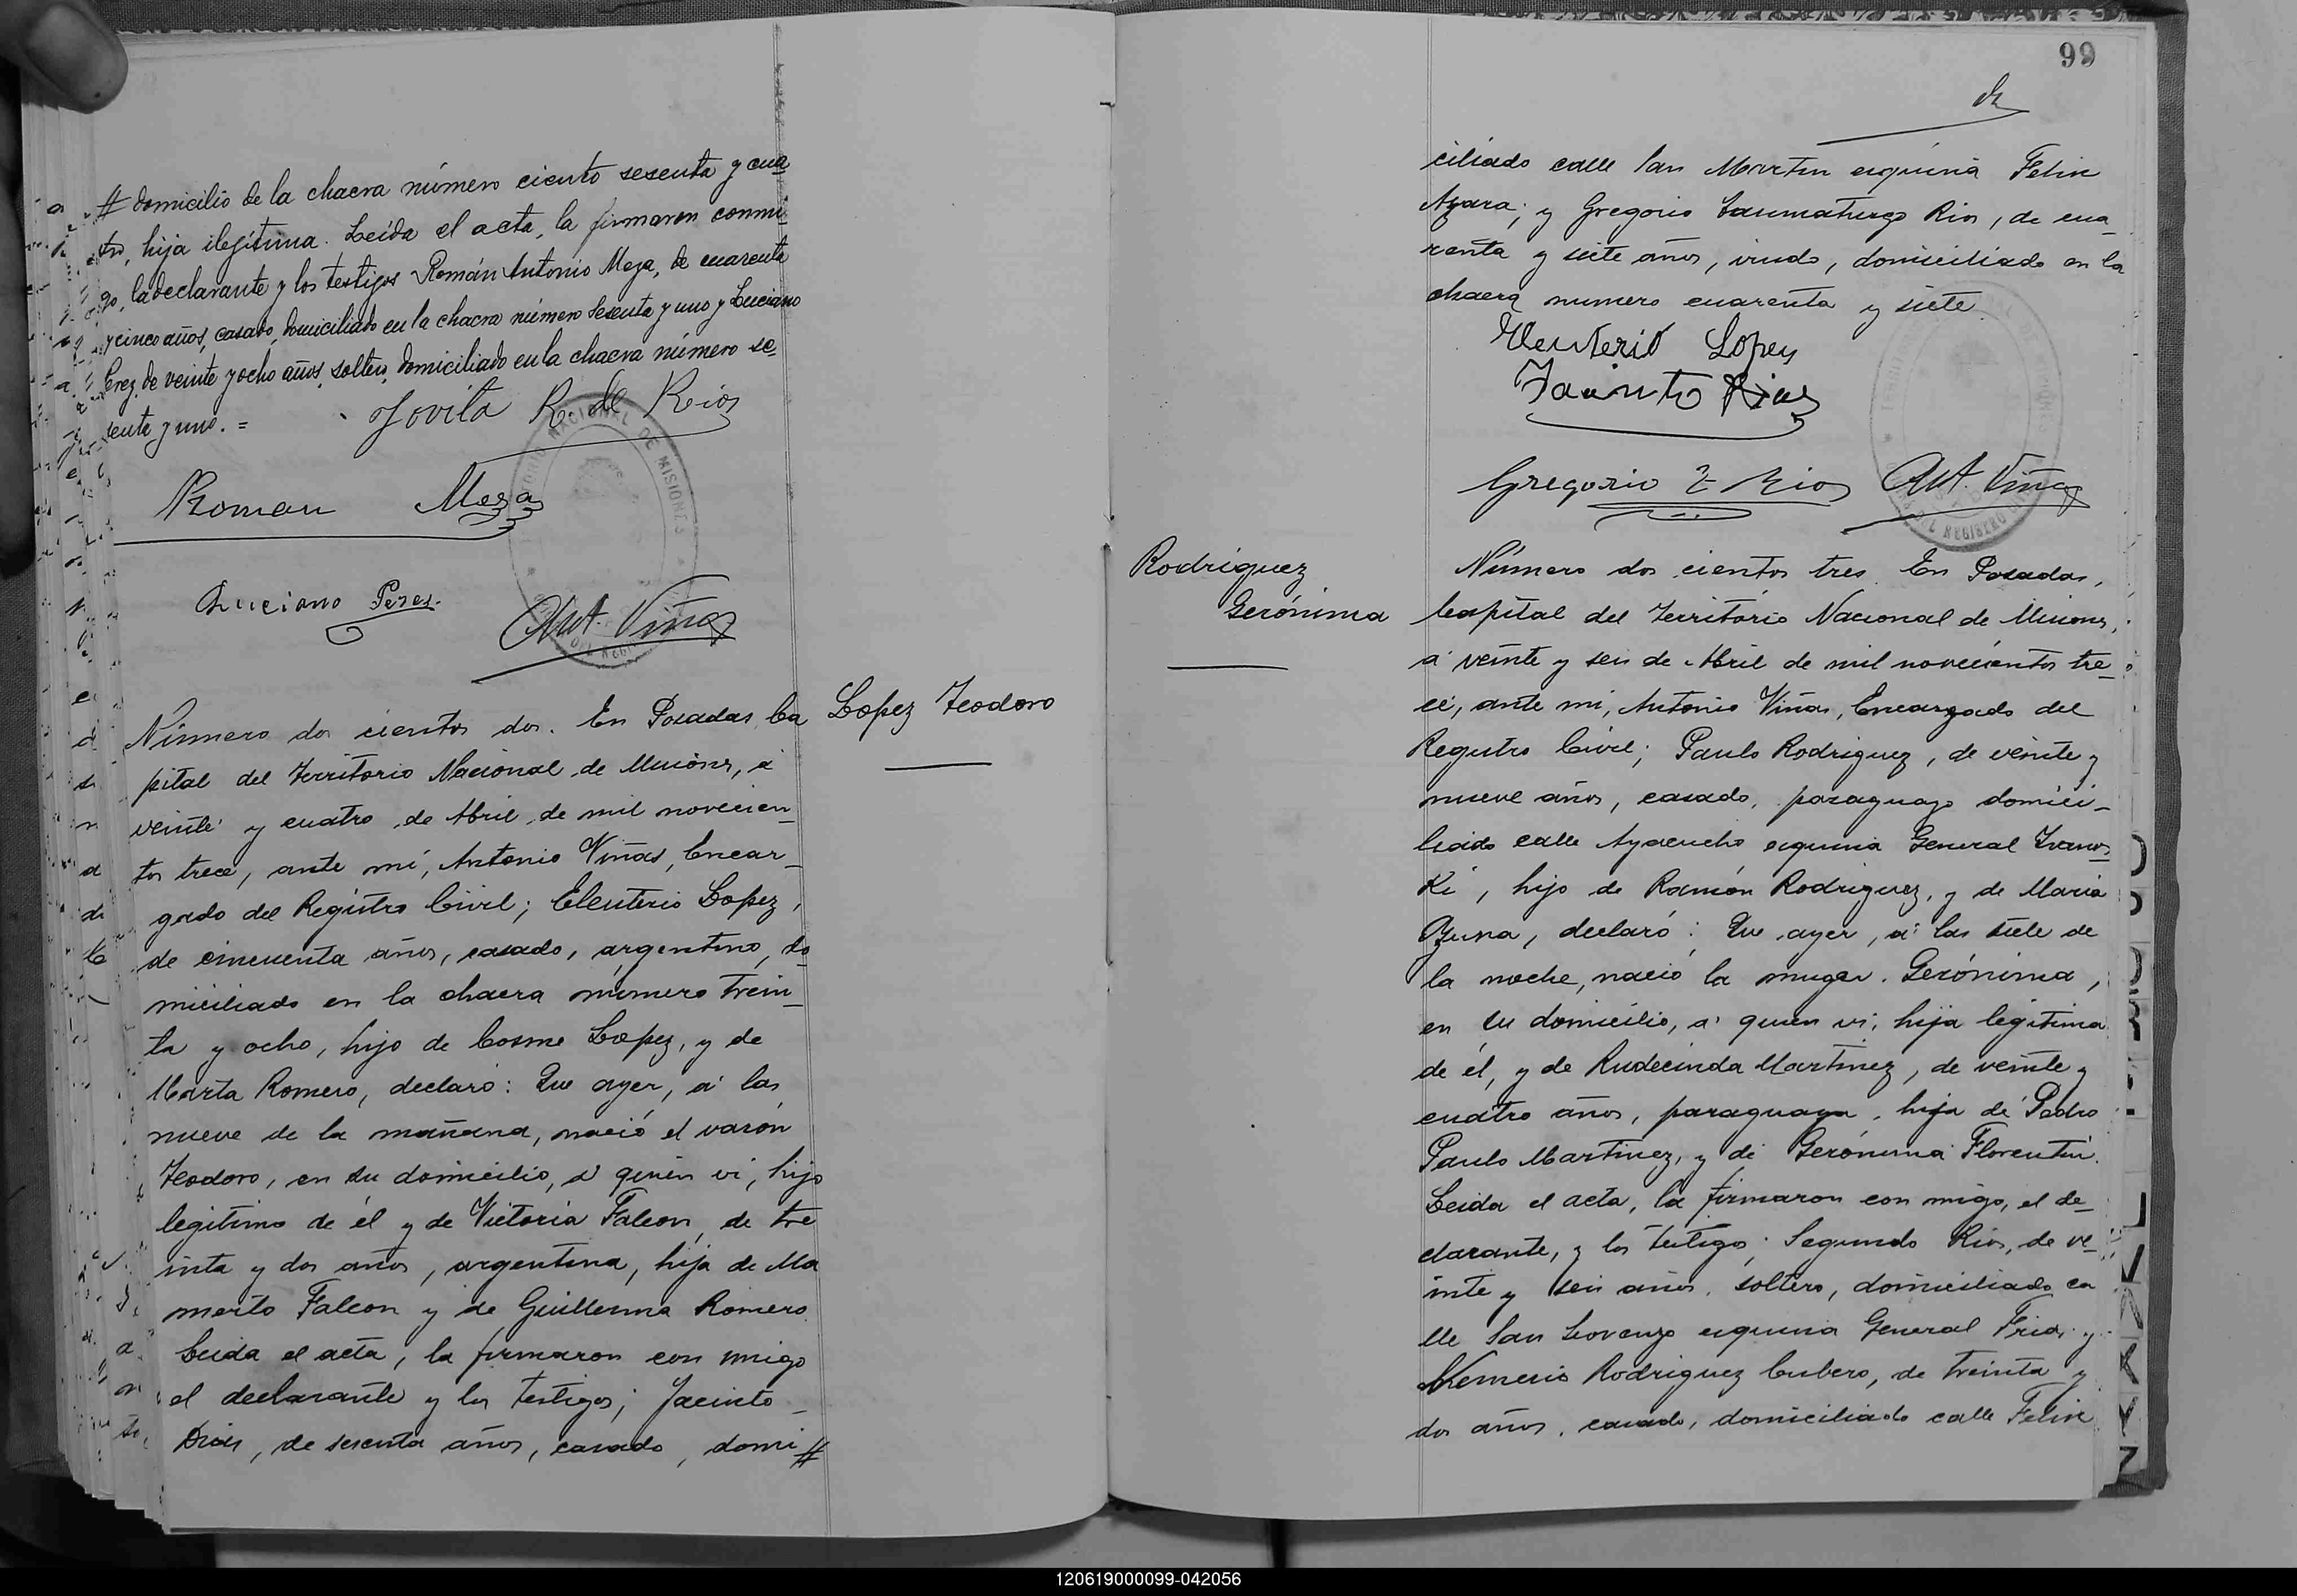 # domicilio de la chacra número ciento sesenta y cua
tro, hija ilegítima. Leída el acta, la firmaron conmi
go, la declarante y los testigos Román Antonio Meza, de cuarenta
y cinco años, casado, domiciliado en la chacra número sesenta y uno y Luciano
Perez, de veinte y ocho años, soltero, domiciliado en la chacra número se-
senta y uno. =
Jovita R. de Rios
Roman Meza
Luciano Perez.
Ant. Viñas
Número dos cientos dos. En Posadas, Ca
Lopez Teodoro
pital del Territorio Nacional de Misiones, á
veinte y cuatro de Abril de mil novecien-
tos trece, ante mí, Antonio Viñas, Encar-
gado del Registro Civil; Eleuterio Lopez,
de cincuenta años, casado, argentino, do-
miciliado en la chacra número trein-
ta y ocho, hijo de Cosme Lopez, y de
Marta Romero, declaró: Que ayer, á las
nueve de la mañana, nació el varón
Teodoro, en su domicilio, á quien vi, hijo
legitimo de él y de Victoria Falcon, de tre
inta y dos años, argentina, hija de Ma
merto Falcon y de Guillerma Romero.
Leida el acta, la firmaron con migo
el declarante y los testigos; Jacinto
Rios, de sesenta años, casado, domi#
99
ciliado calle San Martin esquina Felix
Azara; y Gregorio Taumaturgo Rios, de cua-
renta y siete años, viudo, domiciliado en la
chacra numero cuarenta y siete.
Eleuterio Lopez
Jacinto Rios
Gregorio T Rios
Ant. Viñas
Rodriguez
Gerónima
Número dos cientos tres. En Posadas,
Capital del Territorio Nacional de Misiones,
á veinte y seis de Abril de mil novecientos tre-
ce, ante mi, Antonio Viñas, Encargado del
Registro Civil; Paulo Rodriguez, de veinte y
nueve años, casado, paraguayo domici-
liado calle Ayacucho esquina General Ivanos-
ki, hijo de Ramón Rodriguez, y de Maria
Ozuna, declaró: Que ayer, á las siete de
la noche, nació la muger. Gerónima,
en su domicilio, á quien vi, hija legítima
de él, y de Rudecinda Martinez, de veinte y
cuatro años, paraguaya, hija de Pedro
Paulo Martinez, y de Gerónima Florentin.
Leida el acta, la firmaron con migo, el de-
clarante, y los testigos; Segundo Rios, de ve-
inte y seis años, soltero, domiciliado ca
lle San Lorenzo esquina General Frias y
Nemesio Rodriguez Cubero, de treinta y
dos años, casado, domiciliado calle Felix
120619000099-042056